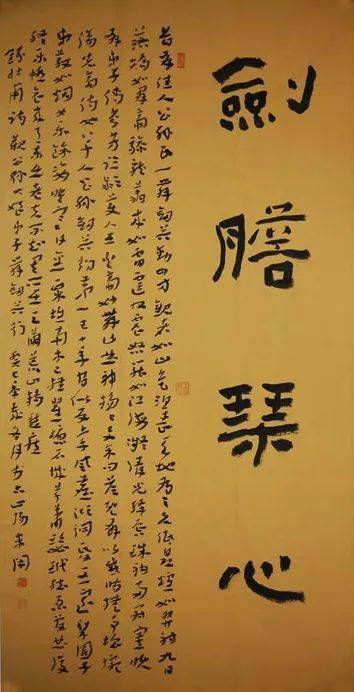 劍膽琹心
昔有佳人公孫氏一舞劍器動四方觀者如山色沮喪天地為之久低昂㸌如羿射九日
落矯如群帝驂龍翔來如雷霆收震怒罷如江海凝清光絳唇珠袖兩寂寞晚
有弟子傳芬芳臨潁美人在白帝妙舞此曲神揚揚與余問答既有以感時撫事增惋
傷先帝侍女八千人公孫劍器初第一五十年間似反掌風塵澒洞昏王室梨園子
弟散如煙女樂餘姿映寒日金粟堆南木已拱瞿塘石城草蕭瑟玳筵急管曲復
終樂極哀來月東出老夫不知其所往足繭荒山轉愁疾
錄杜甫詩觀公孫大娘弟子舞劍器行癸巳年春月書